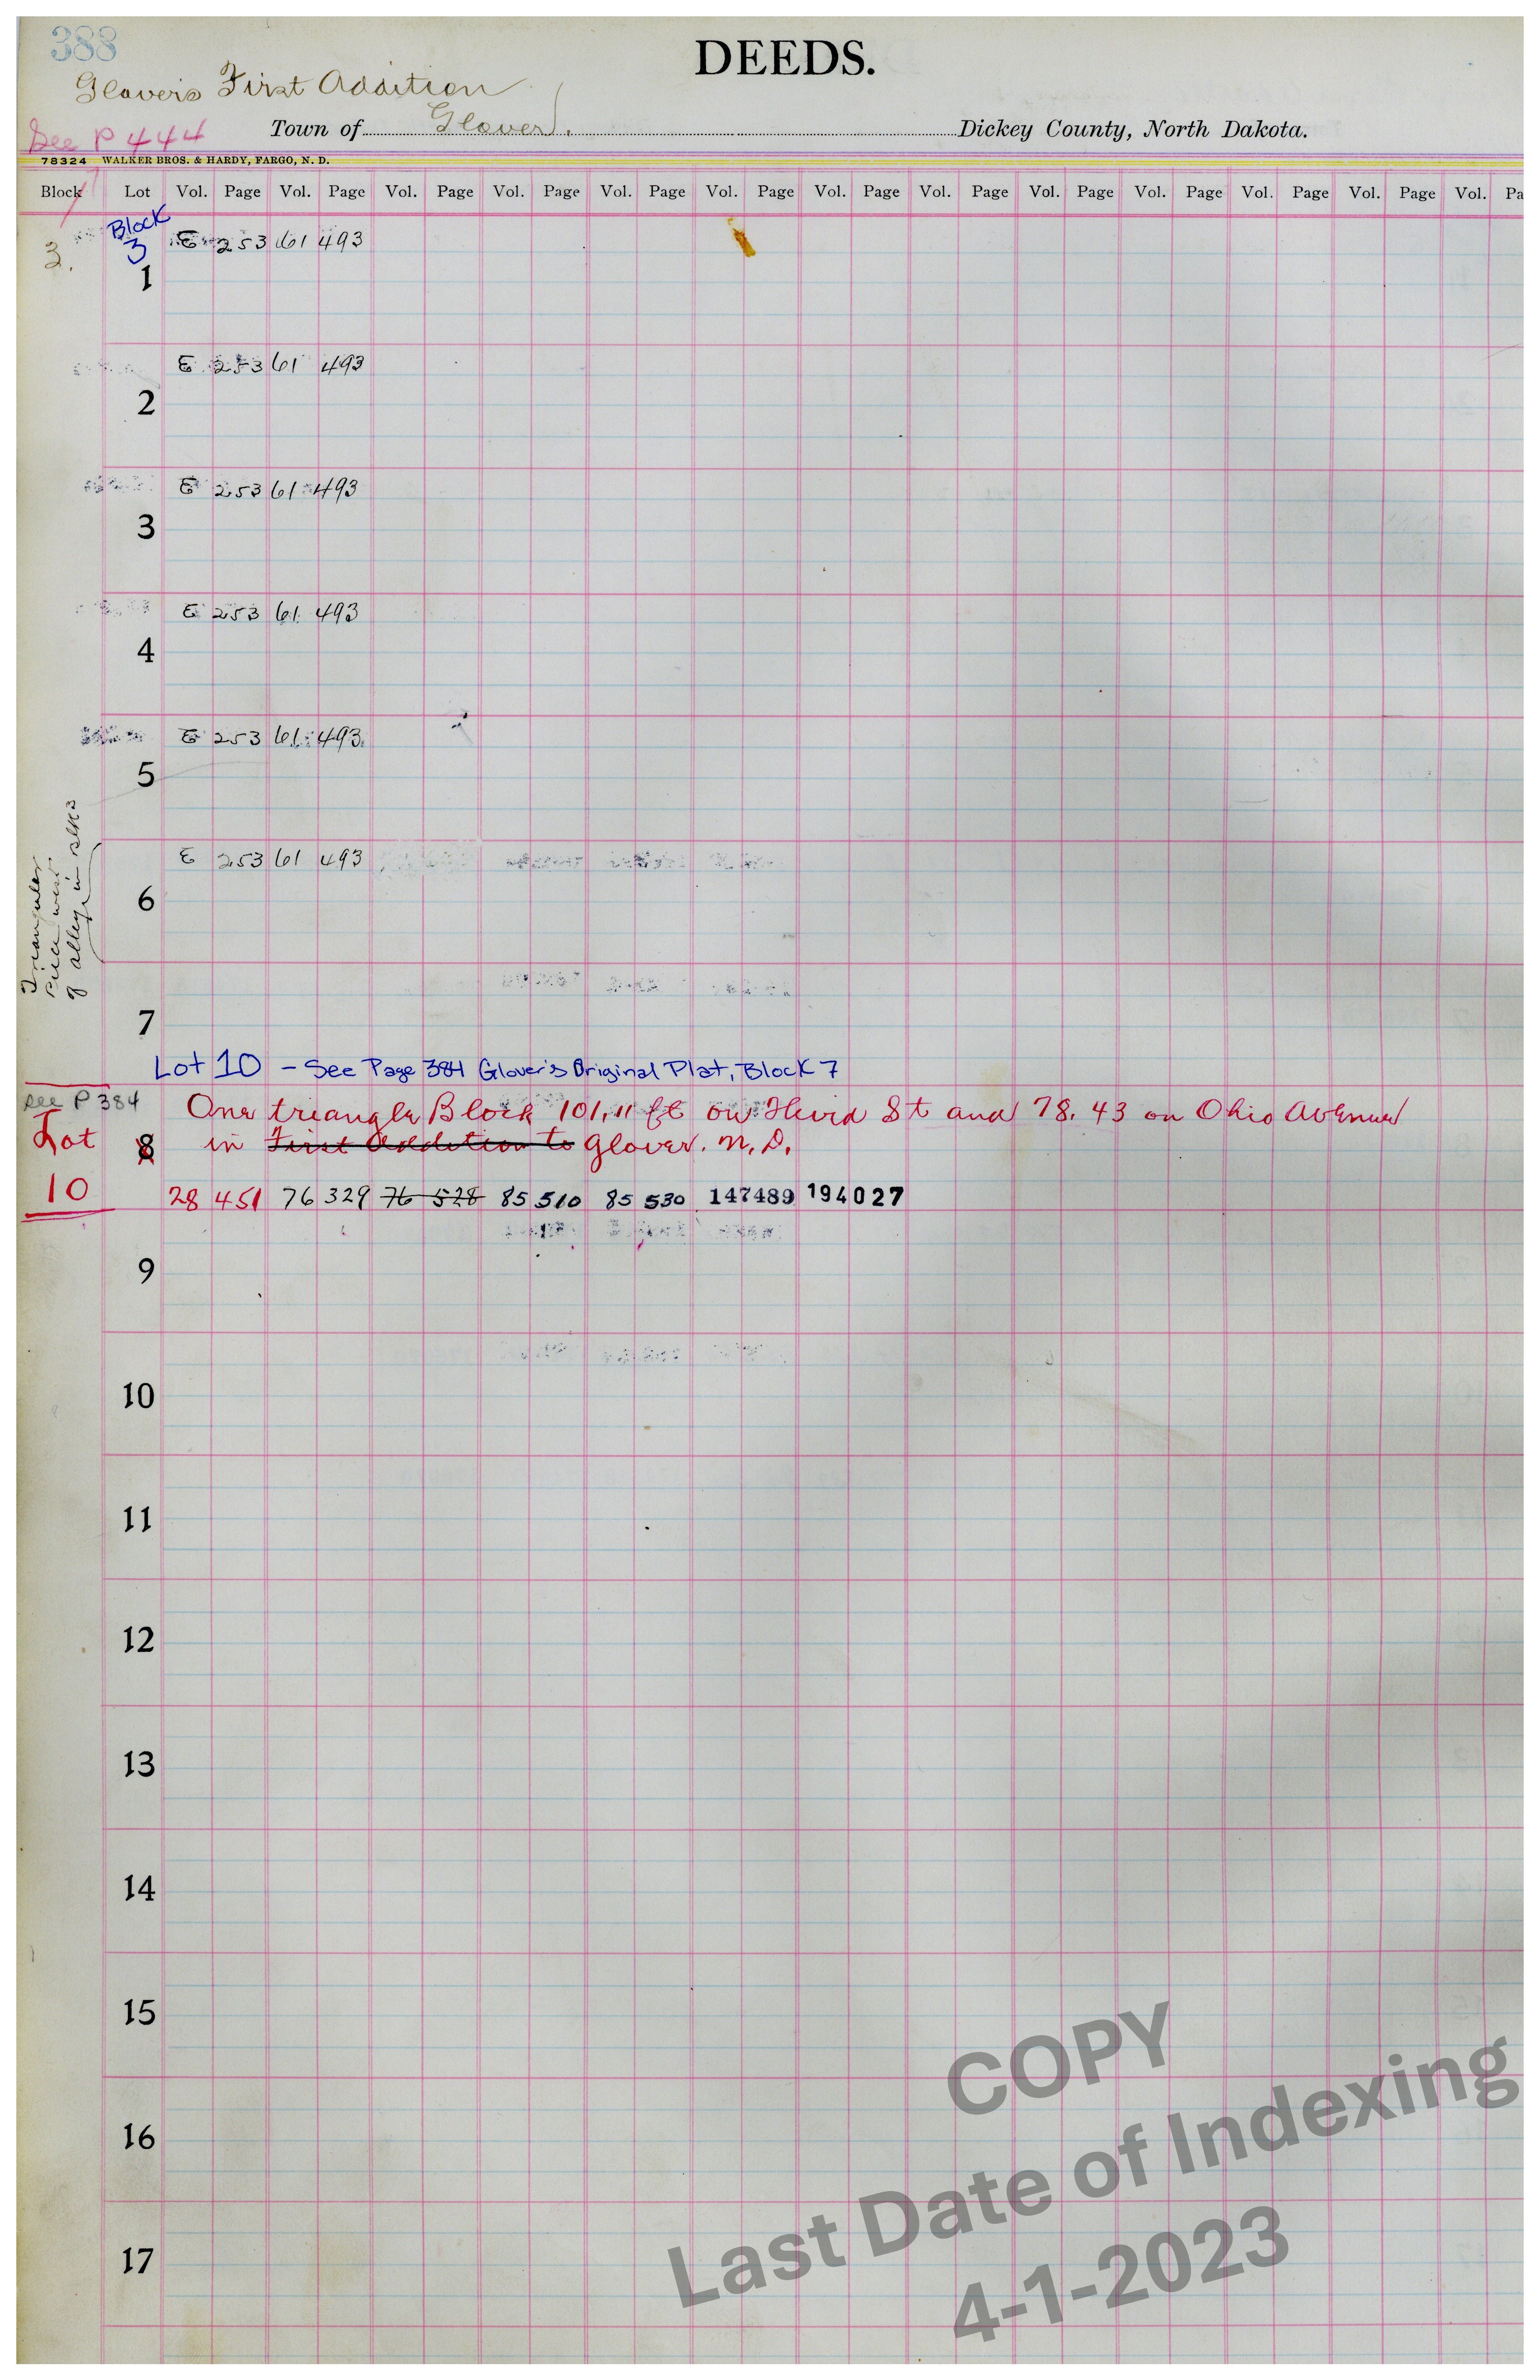 388
DEEDS.
Glover's First Addition
See P 444
Town of Glover. Dickey County, North Dakota.
78324 WALKER BROS. & HARDY, FARGO, N. D.
Block Lot Vol. Page Vol. Page Vol. Page Vol. Page Vol. Page Vol. Page Vol. Page Vol. Page Vol. Page Vol. Page Vol. Page Vol. Page Vol. Pa
Block
3
3. E 253 61 493
1
E 253 61 493
2
E 253 61 493
3
E 253 61 493
4
E 253 61 493
5
Triangular
Piece west
of alley in Blk 3
E 253 61 493
6
7
Lot 10 - See Page 384 Glover's Original Plat, Block 7
See P 384
One triangle Block 101.11 ft on Third St and 78.43 on Ohio Avenue
Lot 8 in First Addition to Glover. N. D.
10 28 451 76 329 76 528 85 510 85 530 147489 194027
9
10
11
12
13
14
15
16
17
COPY
Last Date of Indexing
4-1-2023